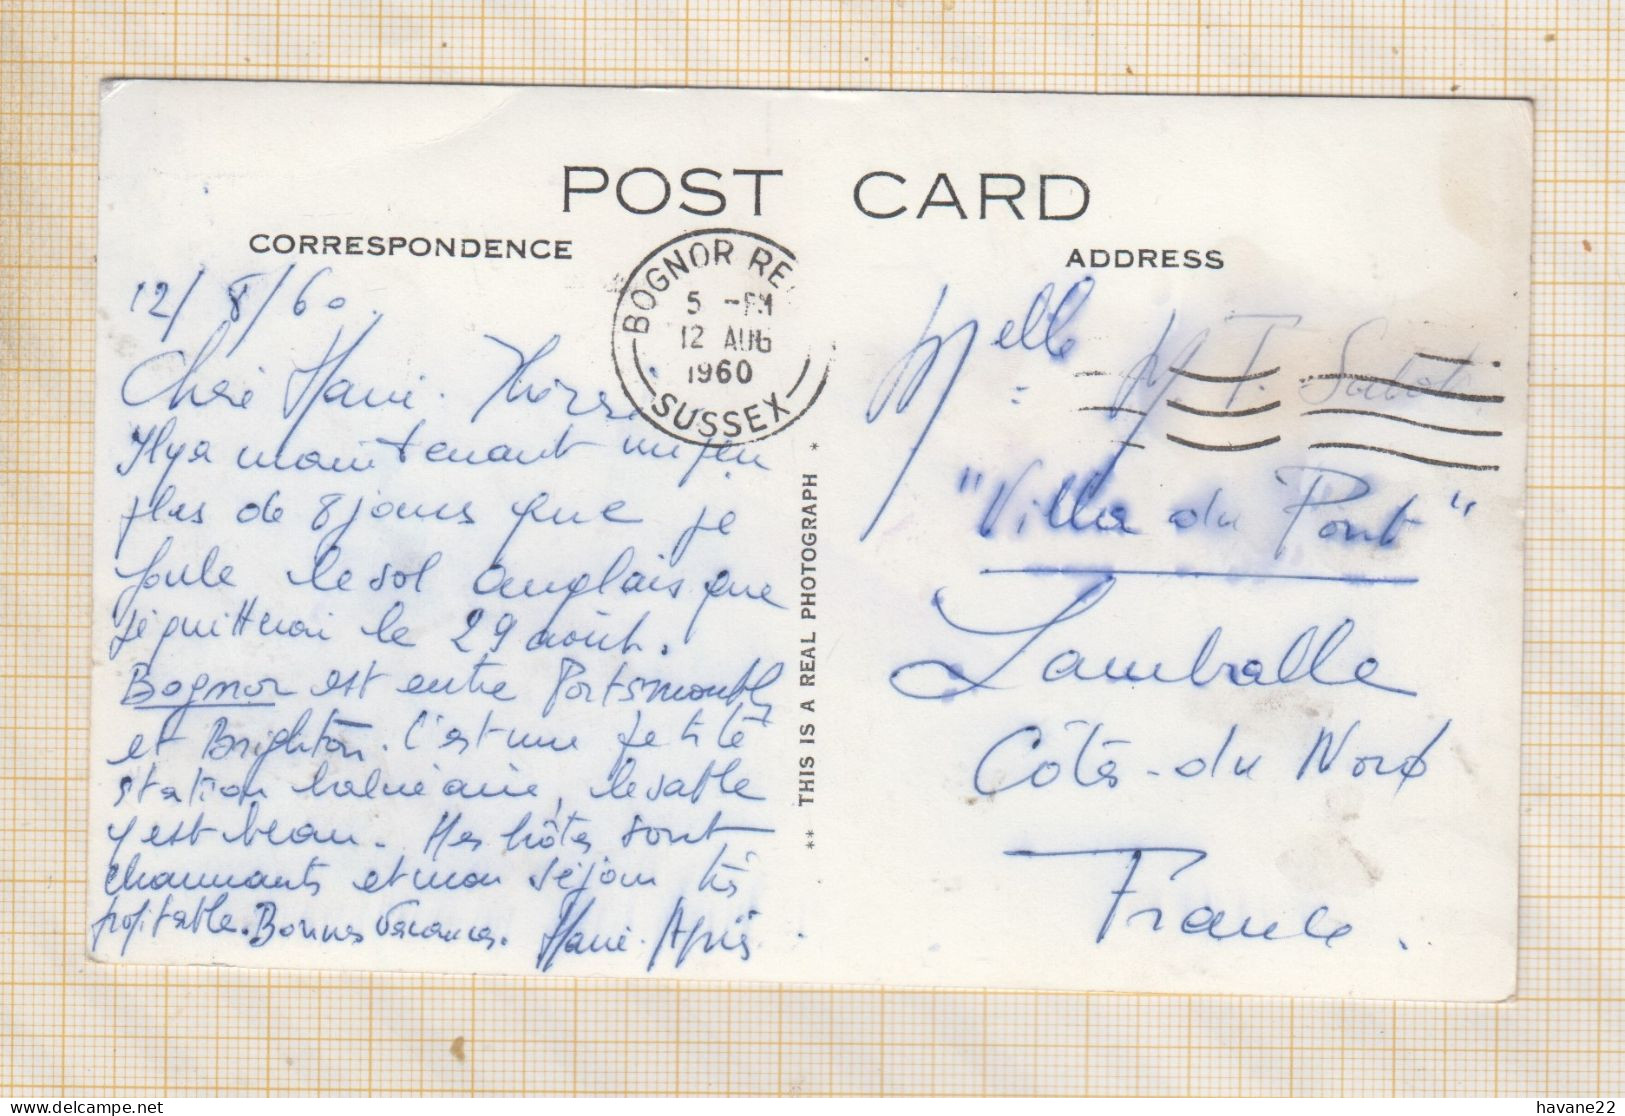 POST CARD
CORRESPONDENCE
ADDRESS
BOGNOR RE
5 -PM
12 AUG
1960
SUSSEX
12/8/60.
Chère Marie-Thérèse
Il y a maintenant un peu
plus de 8 jours que je
foule le sol anglais que
je quitterai le 29 août.
Bognor est entre Portsmouth
et Brighton. C'est une petite
station balnéaire, le sable
y est beau. Mes hôtes sont
charmants et mon séjour très
profitable. Bonnes vacances. Marie
** THIS IS A REAL PHOTOGRAPH *
Melle M. T.
"Villa du Pont"
Lamballe
Côtes-du Nord
France.
havane22